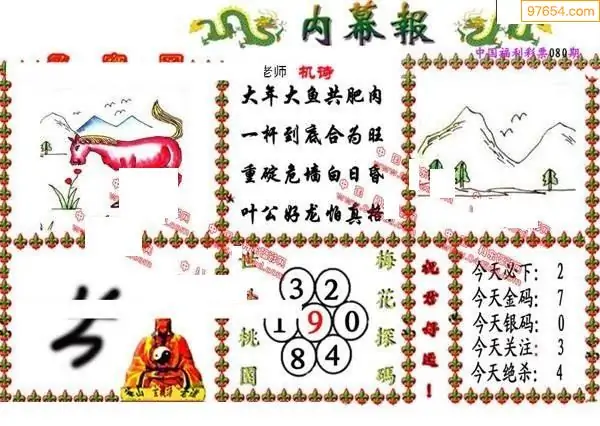 97654.com
内幕報
中国福利彩票080期
老师 机诗
大年大鱼共肥肉
一杆到底合为旺
重碇危墙白日昏
叶公好龙怕真格
世
桃園
3 2
1 9 0
8 4
梅花探碼
祝君好运！
今天必下： 2
今天金码： 7
今天银码： 0
今天关注： 3
今天绝杀： 4